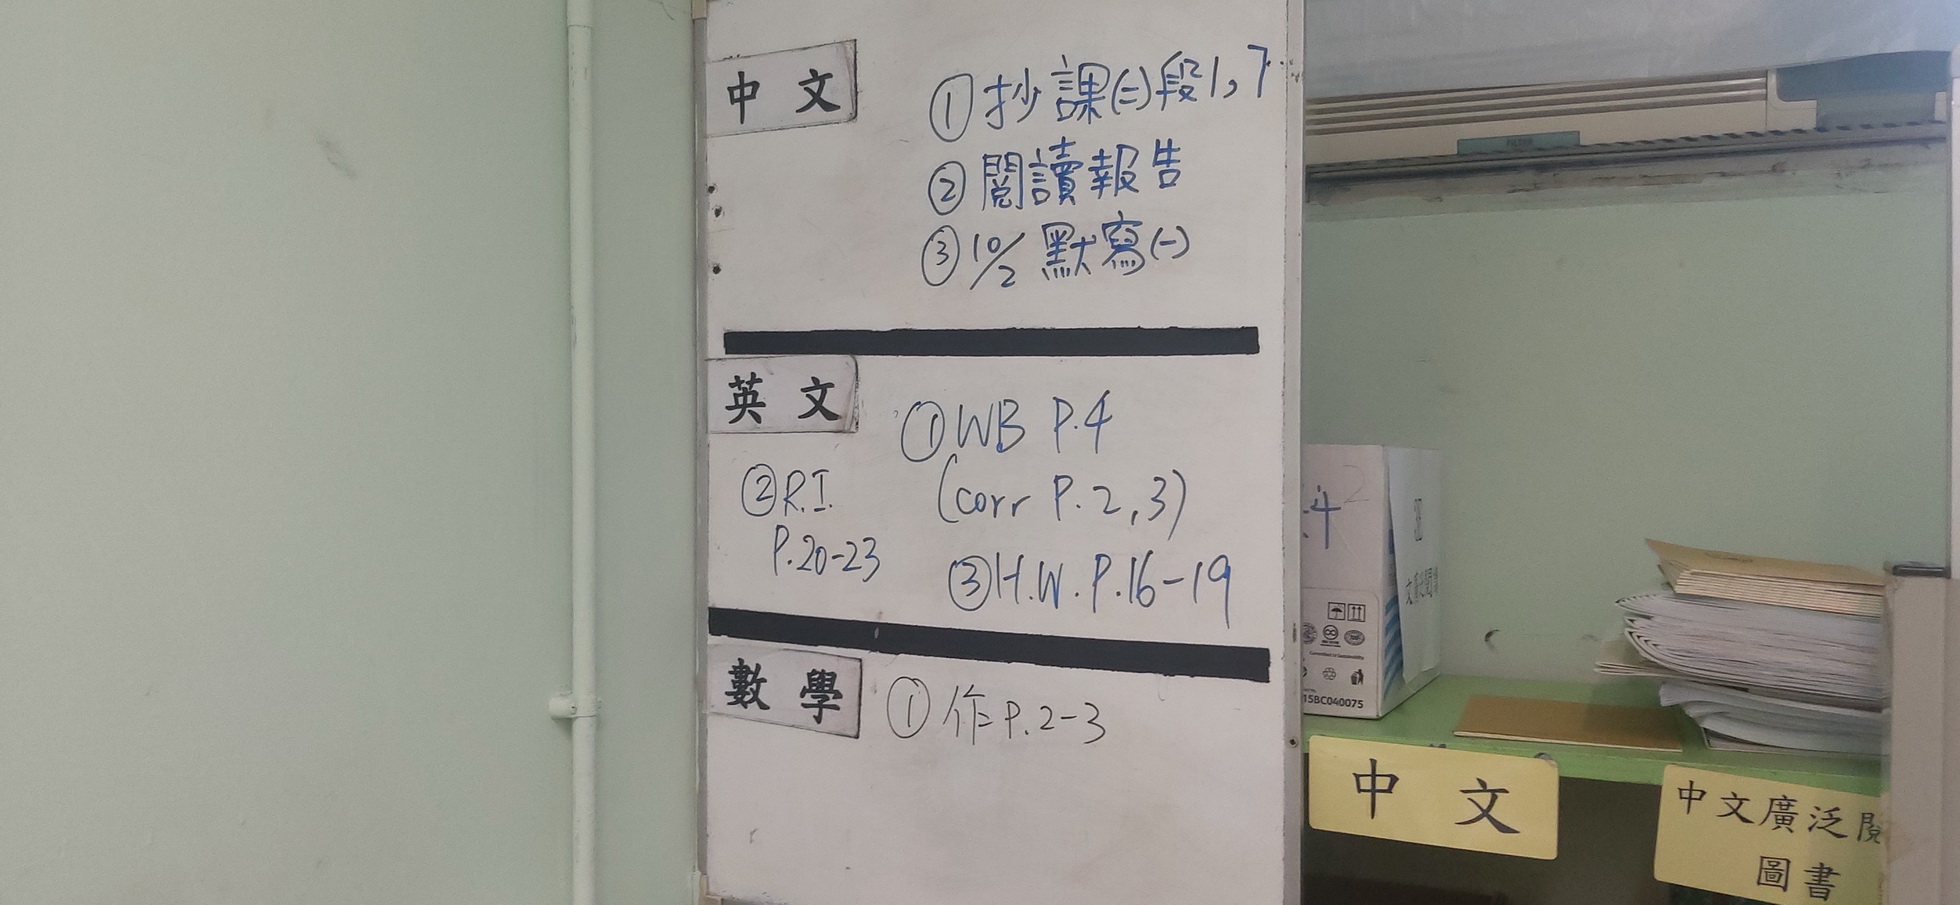 中文
①抄課(二)段1,7
②閱讀報告
③10/2 默寫(一)
英文
①WB P.4
(corr P.2,3)
②R.I.
P.20-23
③H.W. P.16-19
數學
①作P.2-3
15BC040075
中文
中文廣泛閱
圖書